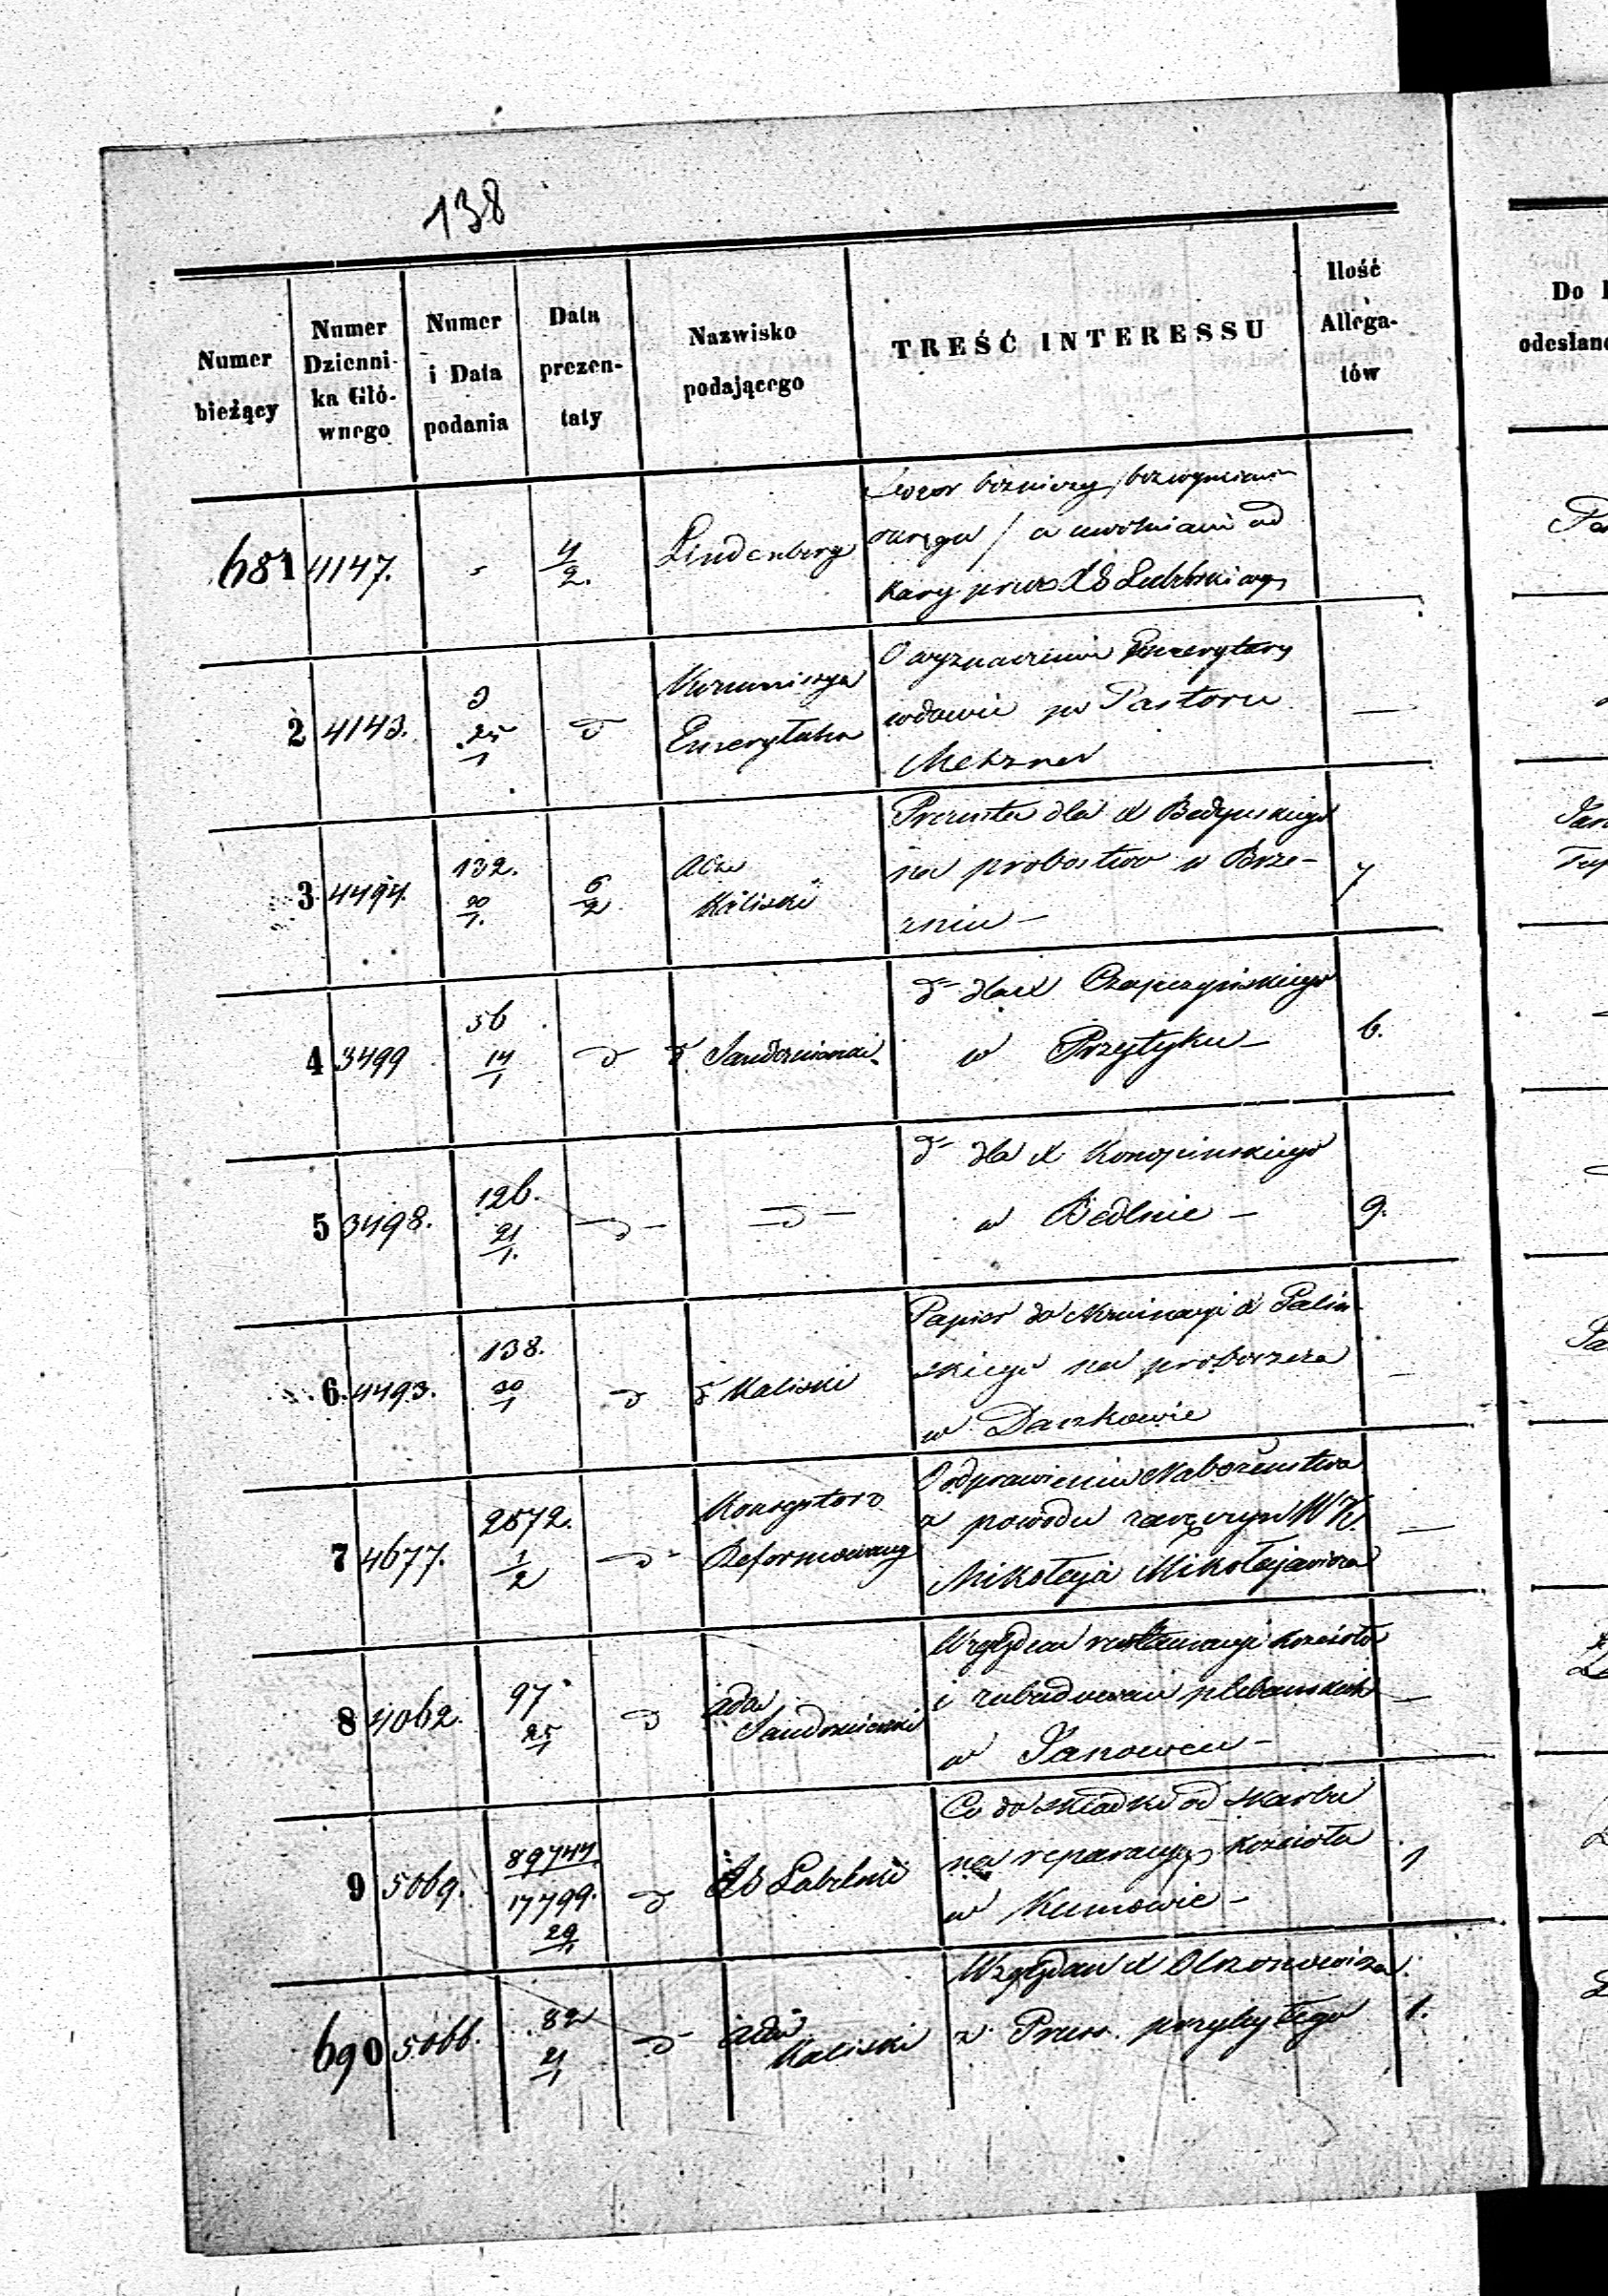 138
Numer bieżący
Numer Dzienni-
ka Głó-
wnego
Numer
i Data
podania
Data
prezen-
taty
Nazwisko
podającego
TREŚĆ INTERESSU
Ilość
Allega-
tów
Do
odesłano
681 4147. 4/2. Lindenberg
okręgu / o uwolnienie od
kary przez
2 4143. 25/1 Kommissya
Emerytalna
O wyznaczenie Emerytury
wdowie po Pastorze
Metzner
3 4494. 132. 30/1. 6/2 Adm
Kaliski
Prezenta dla X
na probostwo w Brze-
źniu – 7
4 3499 56 14/1 d d Sandomierski
d dla X Czapczyńskiego
w Przytyku – 6.
5 3498. 126. 21/1. d d
d dla X Konopińskiego
w Bedlnie – 9.
6. 4493. 138. 30/1 d d Kaliski
Papier do Nominacyi X Palin-
skiego na proboszcza
w Daszkowie
7 4677. 2572. 1/2 d Konsystorz
Reformowany
O odprawienie Nabożeństwa
z powodu zaręczyn W X.
Mikołaja Mikołajewicza
8 4062. 97 25/1 d adm
Sandomierski
Względem restauracyi kościoła
i zabudowań plebańskich
w Janowcu –
9 5069. 89744. 17799. 29/1 d RG Lubelski
Co do składki od skarbu
na reparacyę kościoła
w Kumowie – 1
690 5066. 82 21/1 d adm
Kaliski
Względem X
z Prus. przybyłego 1.